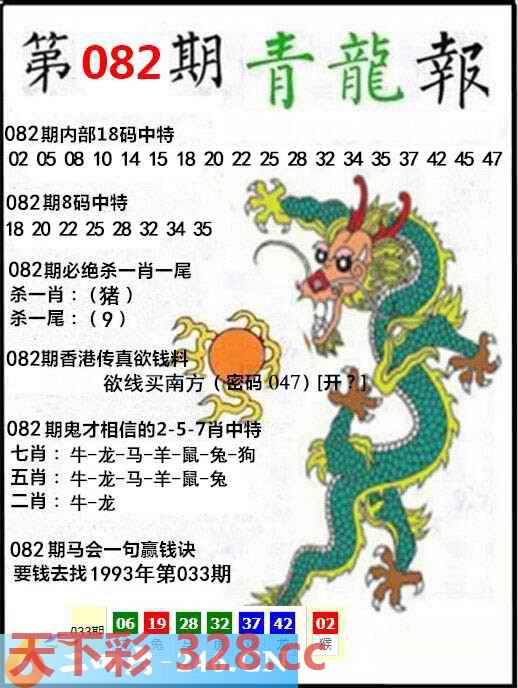 第082期青龍報
082期内部18码中特
02 05 08 10 14 15 18 20 22 25 28 32 34 35 37 42 45 47
082期8码中特
18 20 22 25 28 32 34 35
082期必绝杀一肖一尾
杀一肖：（猪）
杀一尾：（9）
082期香港传真欲钱料
欲线买南方（密码 047）[开？]
082期鬼才相信的2-5-7肖中特
七肖：牛-龙-马-羊-鼠-兔-狗
五肖：牛-龙-马-羊-鼠-兔
二肖：牛-龙
082期马会一句赢钱诀
要钱去找1993年第033期
033期 06 19 28 32 37 42 02
兔 龙 猴
天下彩-328.cc